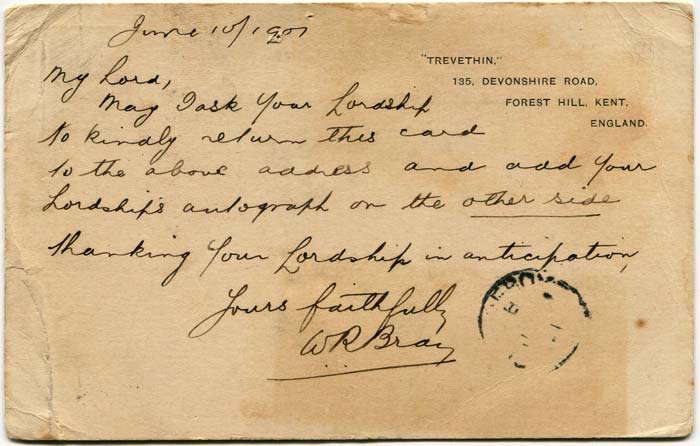 June 10/1901
"TREVETHIN,"
135, DEVONSHIRE ROAD,
FOREST HILL, KENT,
ENGLAND.
My Lord,
May I ask Your Lordship
to kindly return this card
to the above address and add your
Lordships autograph on the other side
thanking Your Lordship in anticipation,
Yours faithfully
W R Bray